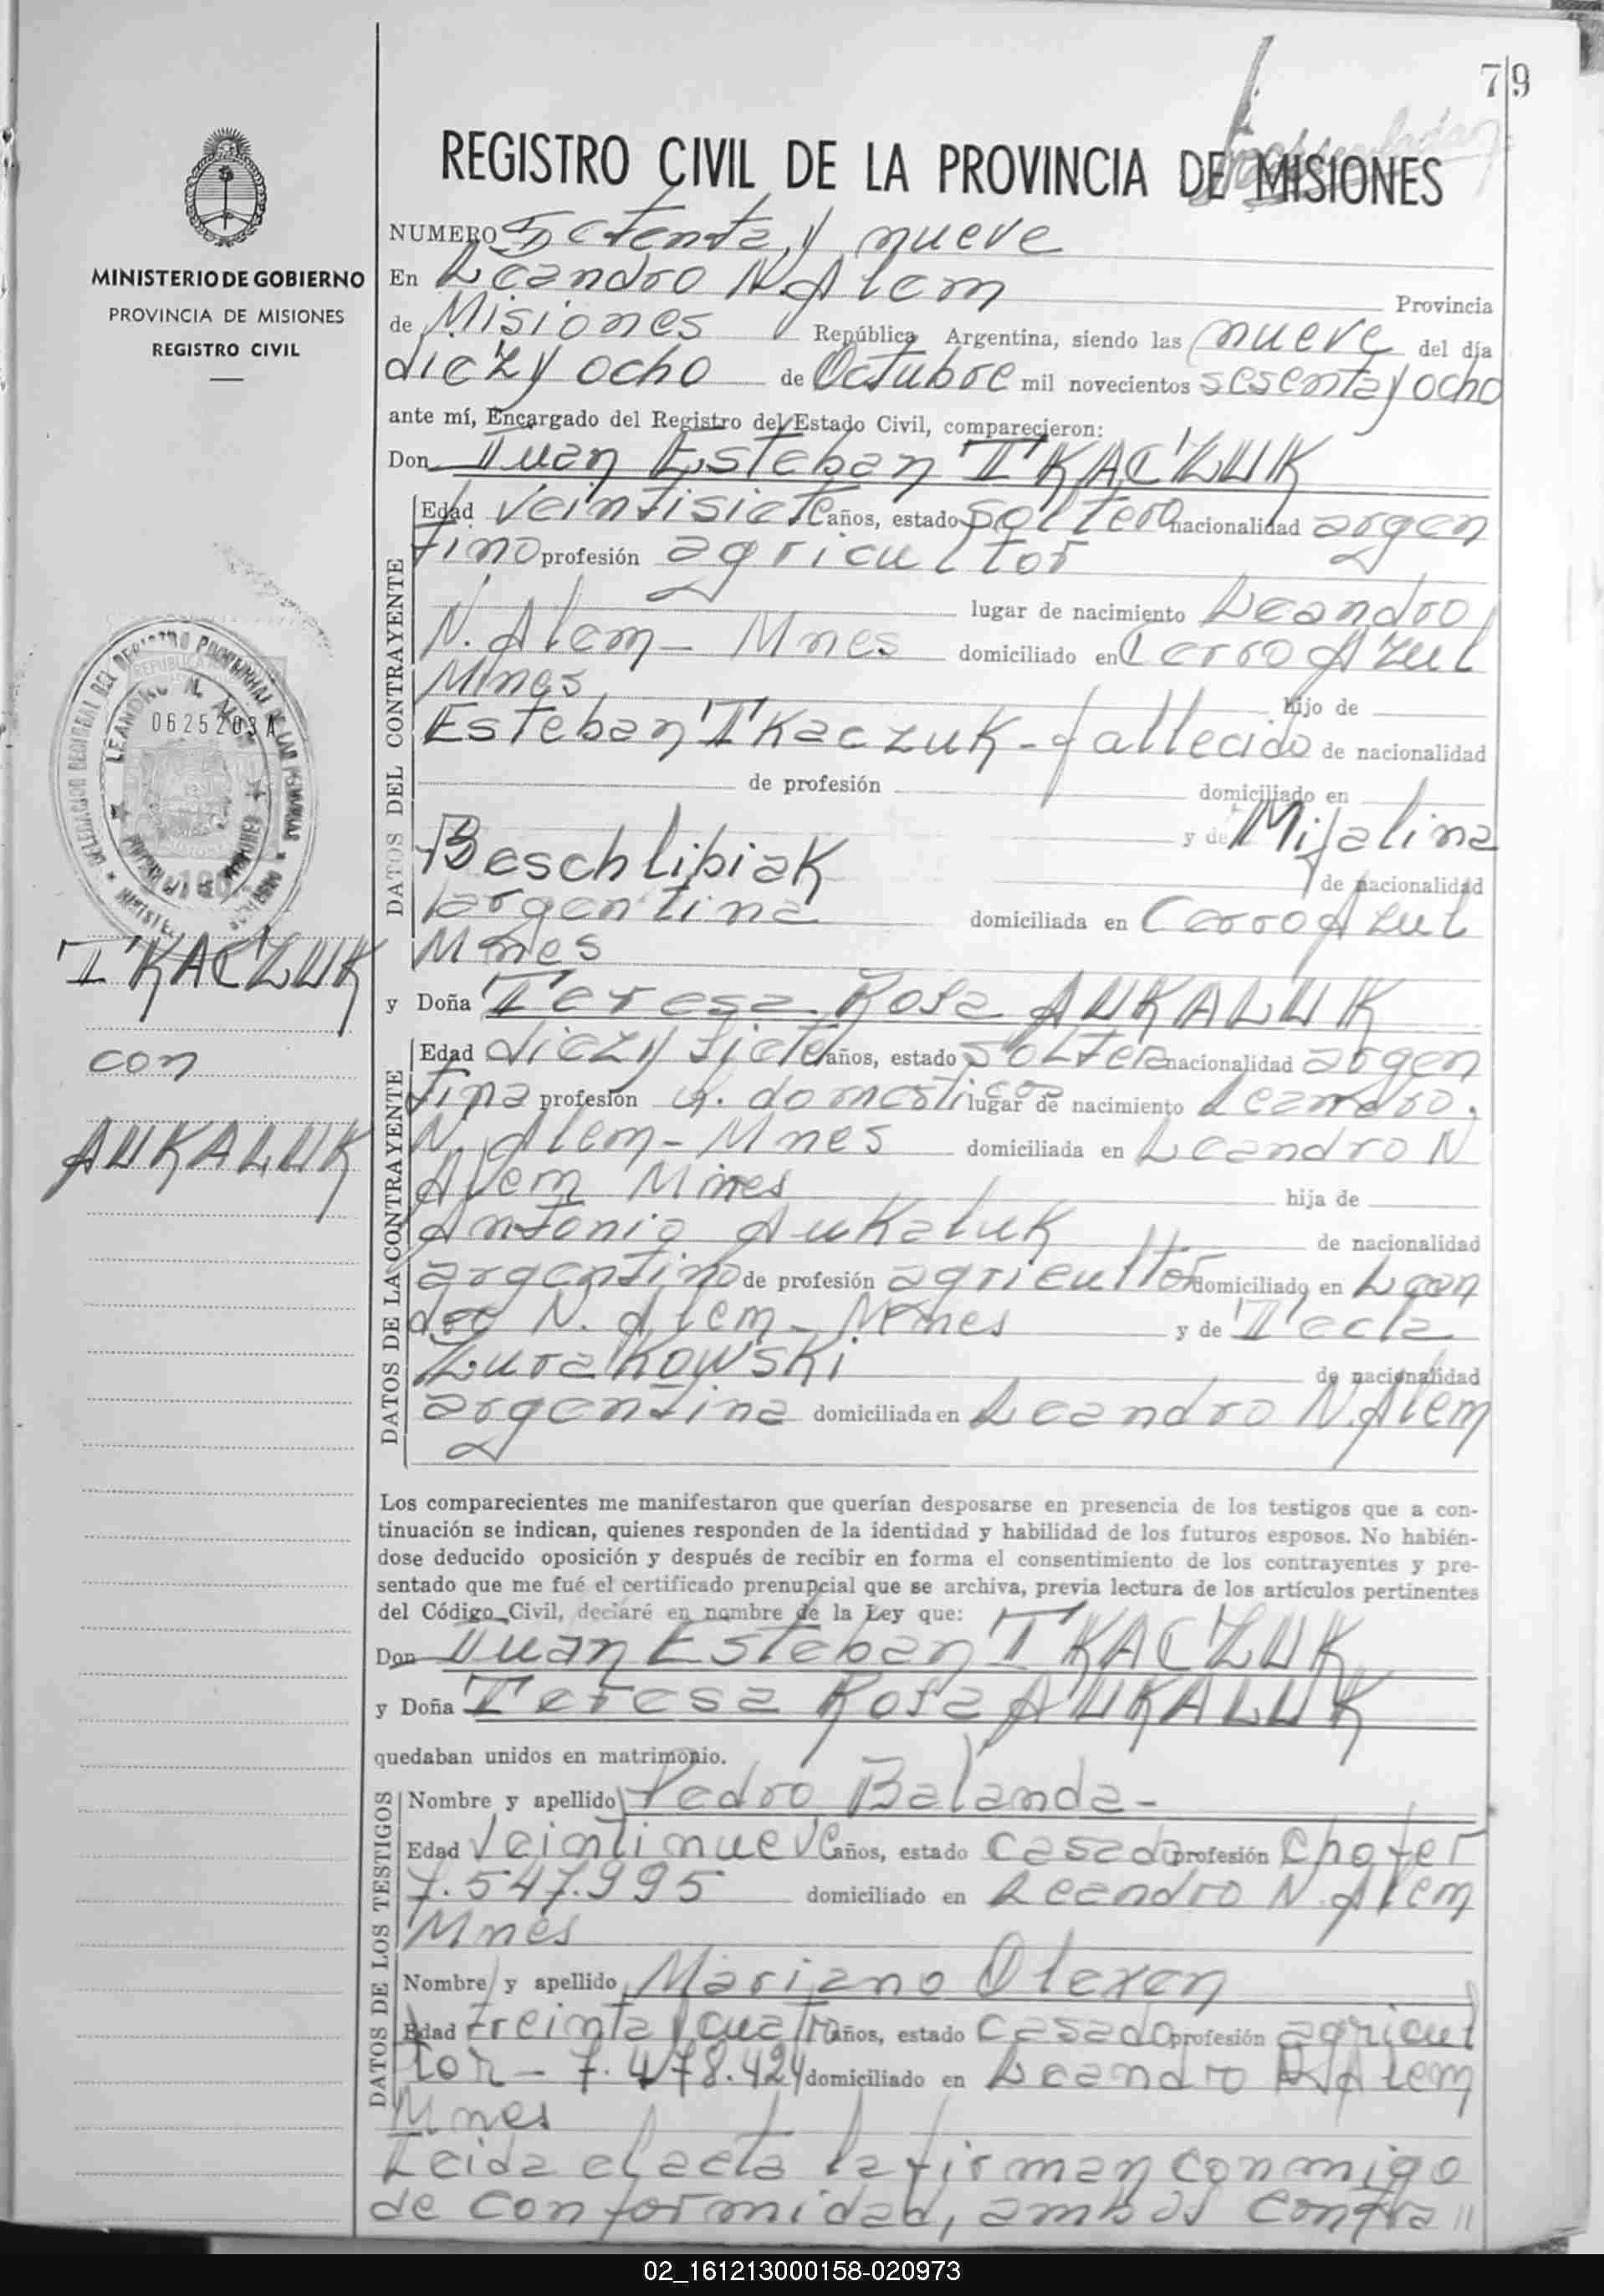 79
REGISTRO CIVIL DE LA PROVINCIA DE MISIONES
MINISTERIO DE GOBIERNO
PROVINCIA DE MISIONES
REGISTRO CIVIL
NUMERO Setenta y nueve
En Leandro N. Alem Provincia
de Misiones República Argentina, siendo las nueve del día
diez y ocho de Octubre mil novecientos sesenta y ocho
ante mí, Encargado del Registro del Estado Civil, comparecieron:
Don Juan Esteban TKACZUK
DATOS DEL CONTRAYENTE
Edad veintisiete años, estado soltero nacionalidad argen
tino profesión agricultor
lugar de nacimiento Leandro
N. Alem - Mnes domiciliado en Cerro Azul
Mnes hijo de
Esteban Tkaczuk - fallecido de nacionalidad
de profesión domiciliado en
y de Mijalina
Beschlibiak de nacionalidad
argentina domiciliada en Cerro Azul
Mnes
0625203A
TKACZUK
con
AUKALUK
y Doña Teresa Rosa AUKALUK
DATOS DE LA CONTRAYENTE
Edad diez y siete años, estado soltera nacionalidad argen
tina profesión q. domesticos lugar de nacimiento Leandro
N. Alem - Mnes domiciliada en Leandro N
Alem Mnes hija de
Antonio Aukaluk de nacionalidad
argentino de profesión agricultor domiciliado en Lean
dro N. Alem - Mnes y de Tecla
Zurakowski de nacionalidad
argentina domiciliada en Leandro N. Alem
Los comparecientes me manifestaron que querían desposarse en presencia de los testigos que a con-
tinuación se indican, quienes responden de la identidad y habilidad de los futuros esposos. No habién-
dose deducido oposición y después de recibir en forma el consentimiento de los contrayentes y pre-
sentado que me fué el certificado prenupcial que se archiva, previa lectura de los artículos pertinentes
del Código Civil, declaré en nombre de la Ley que:
Don Juan Esteban TKACZUK
y Doña Teresa Rosa AUKALUK
quedaban unidos en matrimonio.
DATOS DE LOS TESTIGOS
Nombre y apellido Pedro Balanda -
Edad Veintinueve años, estado casado profesión Chofer
7.547.995 domiciliado en Leandro N. Alem
Mnes
Nombre y apellido Mariano Olexen
Edad treinta y cuatro años, estado casado profesión agricul
tor - 7.478.424 domiciliado en Leandro N. Alem
Mnes
Leida el acta la firman conmigo
de conformidad, ambos contra //
02_161213000158-020973